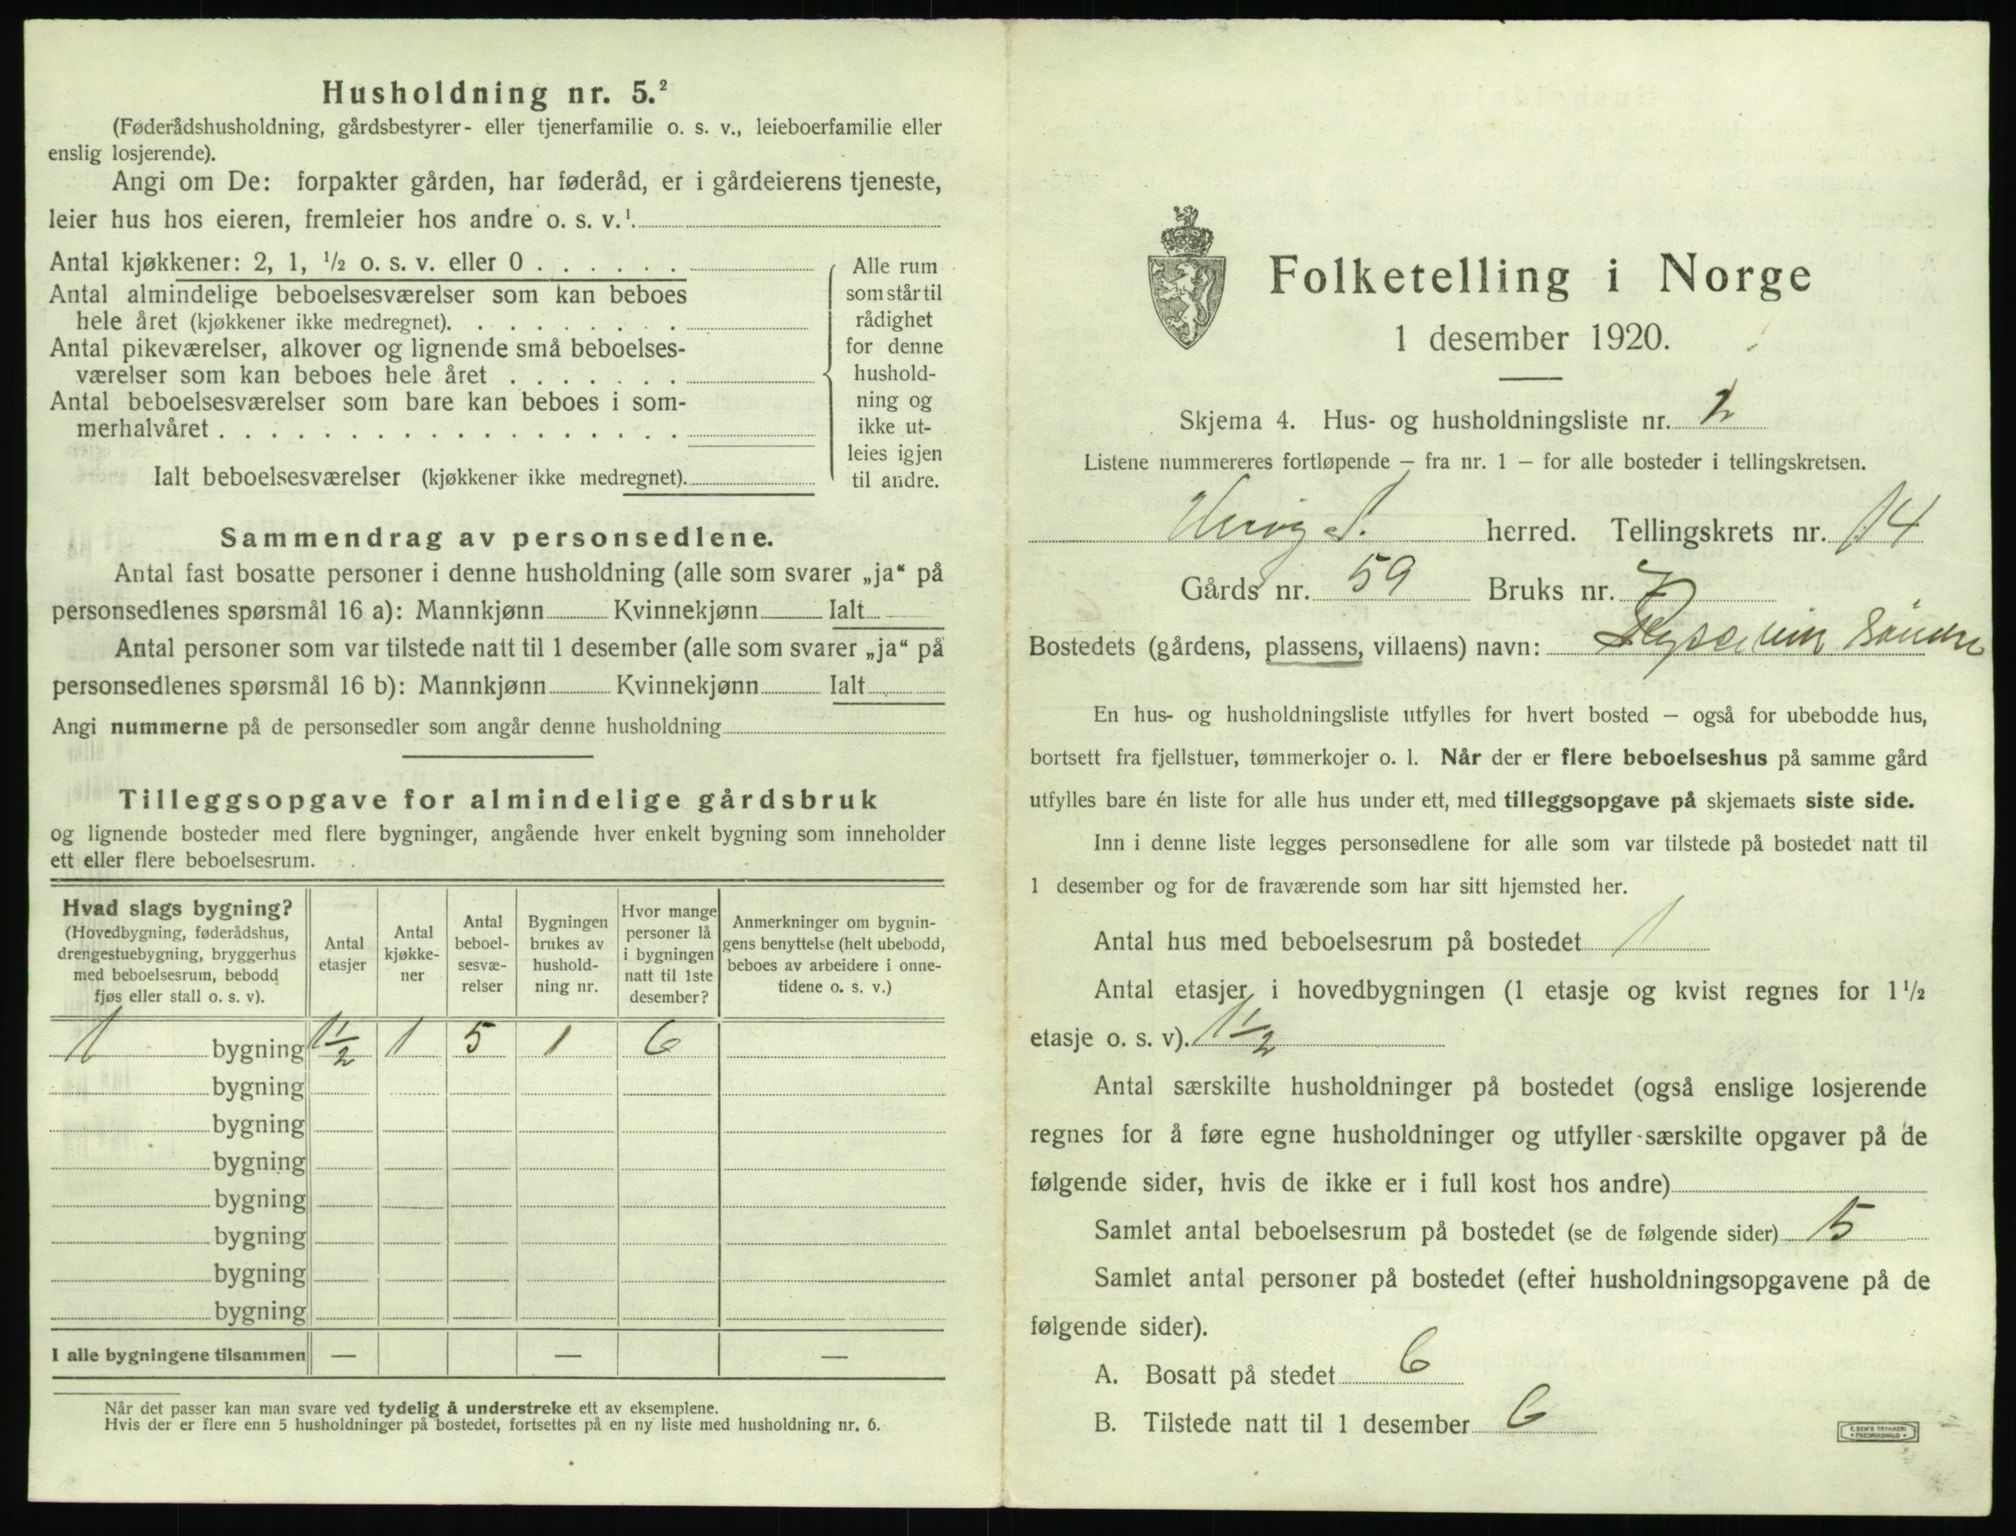 Husholdning nr. 5.²
(Føderådshusholdning, gårdsbestyrer- eller tjenerfamilie o. s. v., leieboerfamilie eller
enslig losjerende).
Angi om De: forpakter gården, har føderåd, er i gårdeierens tjeneste,
leier hus hos eieren, fremleier hos andre o. s. v.¹.
Antal kjøkkener: 2, 1, ½ o. s. v. eller 0 . . . . . .
Antal almindelige beboelsesværelser som kan beboes
hele året (kjøkkener ikke medregnet). . . . . . . . .
Antal pikeværelser, alkover og lignende små beboelses-
værelser som kan beboes hele året . . . . . . .
Antal beboelsesværelser som bare kan beboes i som-
merhalvåret . . . . . . . . . . . . . . . . . .
Ialt beboelsesværelser (kjøkkener ikke medregnet).
Alle rum
som står til
rådighet
for denne
hushold-
ning og
ikke ut-
leies igjen
til andre.
Sammendrag av personsedlene.
Antal fast bosatte personer i denne husholdning (alle som svarer „ja“ på
personsedlenes spørsmål 16 a): Mannkjønn Kvinnekjønn Ialt
Antal personer som var tilstede natt til 1 desember (alle som svarer „ja“ på
personsedlenes spørsmål 16 b): Mannkjønn Kvinnekjønn Ialt
Angi nummerne på de personsedler som angår denne husholdning
Tilleggsopgave for almindelige gårdsbruk
og lignende bosteder med flere bygninger, angående hver enkelt bygning som inneholder
ett eller flere beboelsesrum.
Hvad slags bygning?
(Hovedbygning, føderådshus,
drengestuebygning, bryggerhus
med beboelsesrum, bebodd
fjøs eller stall o. s. v).
Antal
etasjer
Antal
kjøkke-
ner
Antal
beboel-
sesvæ-
relser
Bygningen
brukes av
hushold-
ning nr.
Hvor mange
personer lå
i bygningen
natt til 1ste
desember?
Anmerkninger om bygnin-
gens benyttelse (helt ubebodd,
beboes av arbeidere i onne-
tidene o. s. v.)
1 bygning 1½ 1 5 1 6
bygning
bygning
bygning
bygning
bygning
bygning
bygning
I alle bygningene tilsammen — — —
Når det passer kan man svare ved tydelig å understreke ett av eksemplene.
Hvis der er flere enn 5 husholdninger på bostedet, fortsettes på en ny liste med husholdning nr. 6.
Folketelling i Norge
1 desember 1920.
Skjema 4. Hus- og husholdningsliste nr. 2
Listene nummereres fortløpende — fra nr. 1 — for alle bosteder i tellingskretsen.
herred. Tellingskrets nr. 14
Gårds nr. 59 Bruks nr. 7
Bostedets (gårdens, plassens, villaens) navn:
En hus- og husholdningsliste utfylles for hvert bosted — også for ubebodde hus,
bortsett fra fjellstuer, tømmerkojer o. l. Når der er flere beboelseshus på samme gård
utfylles bare én liste for alle hus under ett, med tilleggsopgave på skjemaets siste side.
Inn i denne liste legges personsedlene for alle som var tilstede på bostedet natt til
1 desember og for de fraværende som har sitt hjemsted her.
Antal hus med beboelsesrum på bostedet 1
Antal etasjer i hovedbygningen (1 etasje og kvist regnes for 1½
etasje o. s. v). 1½
Antal særskilte husholdninger på bostedet (også enslige losjerende
regnes for å føre egne husholdninger og utfyller særskilte opgaver på de
følgende sider, hvis de ikke er i full kost hos andre)
Samlet antal beboelsesrum på bostedet (se de følgende sider) 5
Samlet antal personer på bostedet (efter husholdningsopgavene på de
følgende sider).
A. Bosatt på stedet 6
B. Tilstede natt til 1 desember 6
E. SEM'S TRYKKERI
FREDRIKSHALD